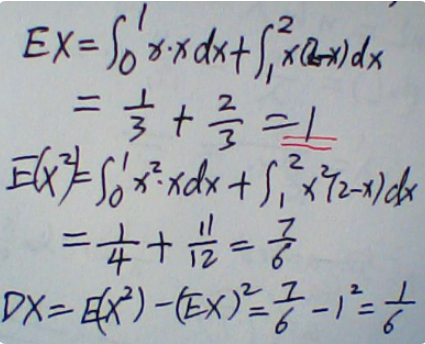 EX = ∫₀¹ x·x dx + ∫₁² x(2-x) dx
= 1/3 + 2/3 = 1
E(X²) = ∫₀¹ x²·x dx + ∫₁² x²(2-x) dx
= 1/4 + 11/12 = 7/6
DX = E(X²) - (EX)² = 7/6 - 1² = 1/6